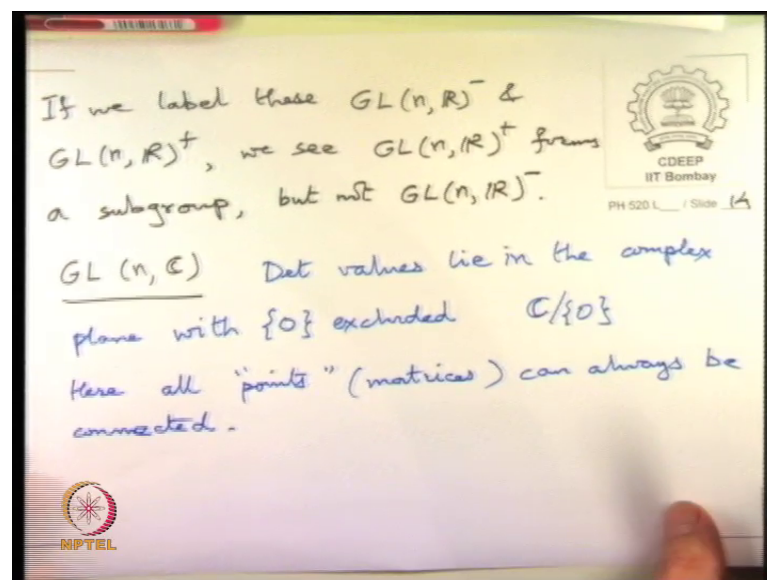 If we label these GL(n, ℝ)⁻ &
GL(n, ℝ)⁺, we see GL(n, ℝ)⁺ forms
a subgroup, but not GL(n, ℝ)⁻.
CDEEP
IIT Bombay
PH 520 L___ / Slide 14
GL (n, ℂ) Det values lie in the complex
plane with {0} excluded ℂ/{0}
Here all "points" (matrices) can always be
connected.
NPTEL